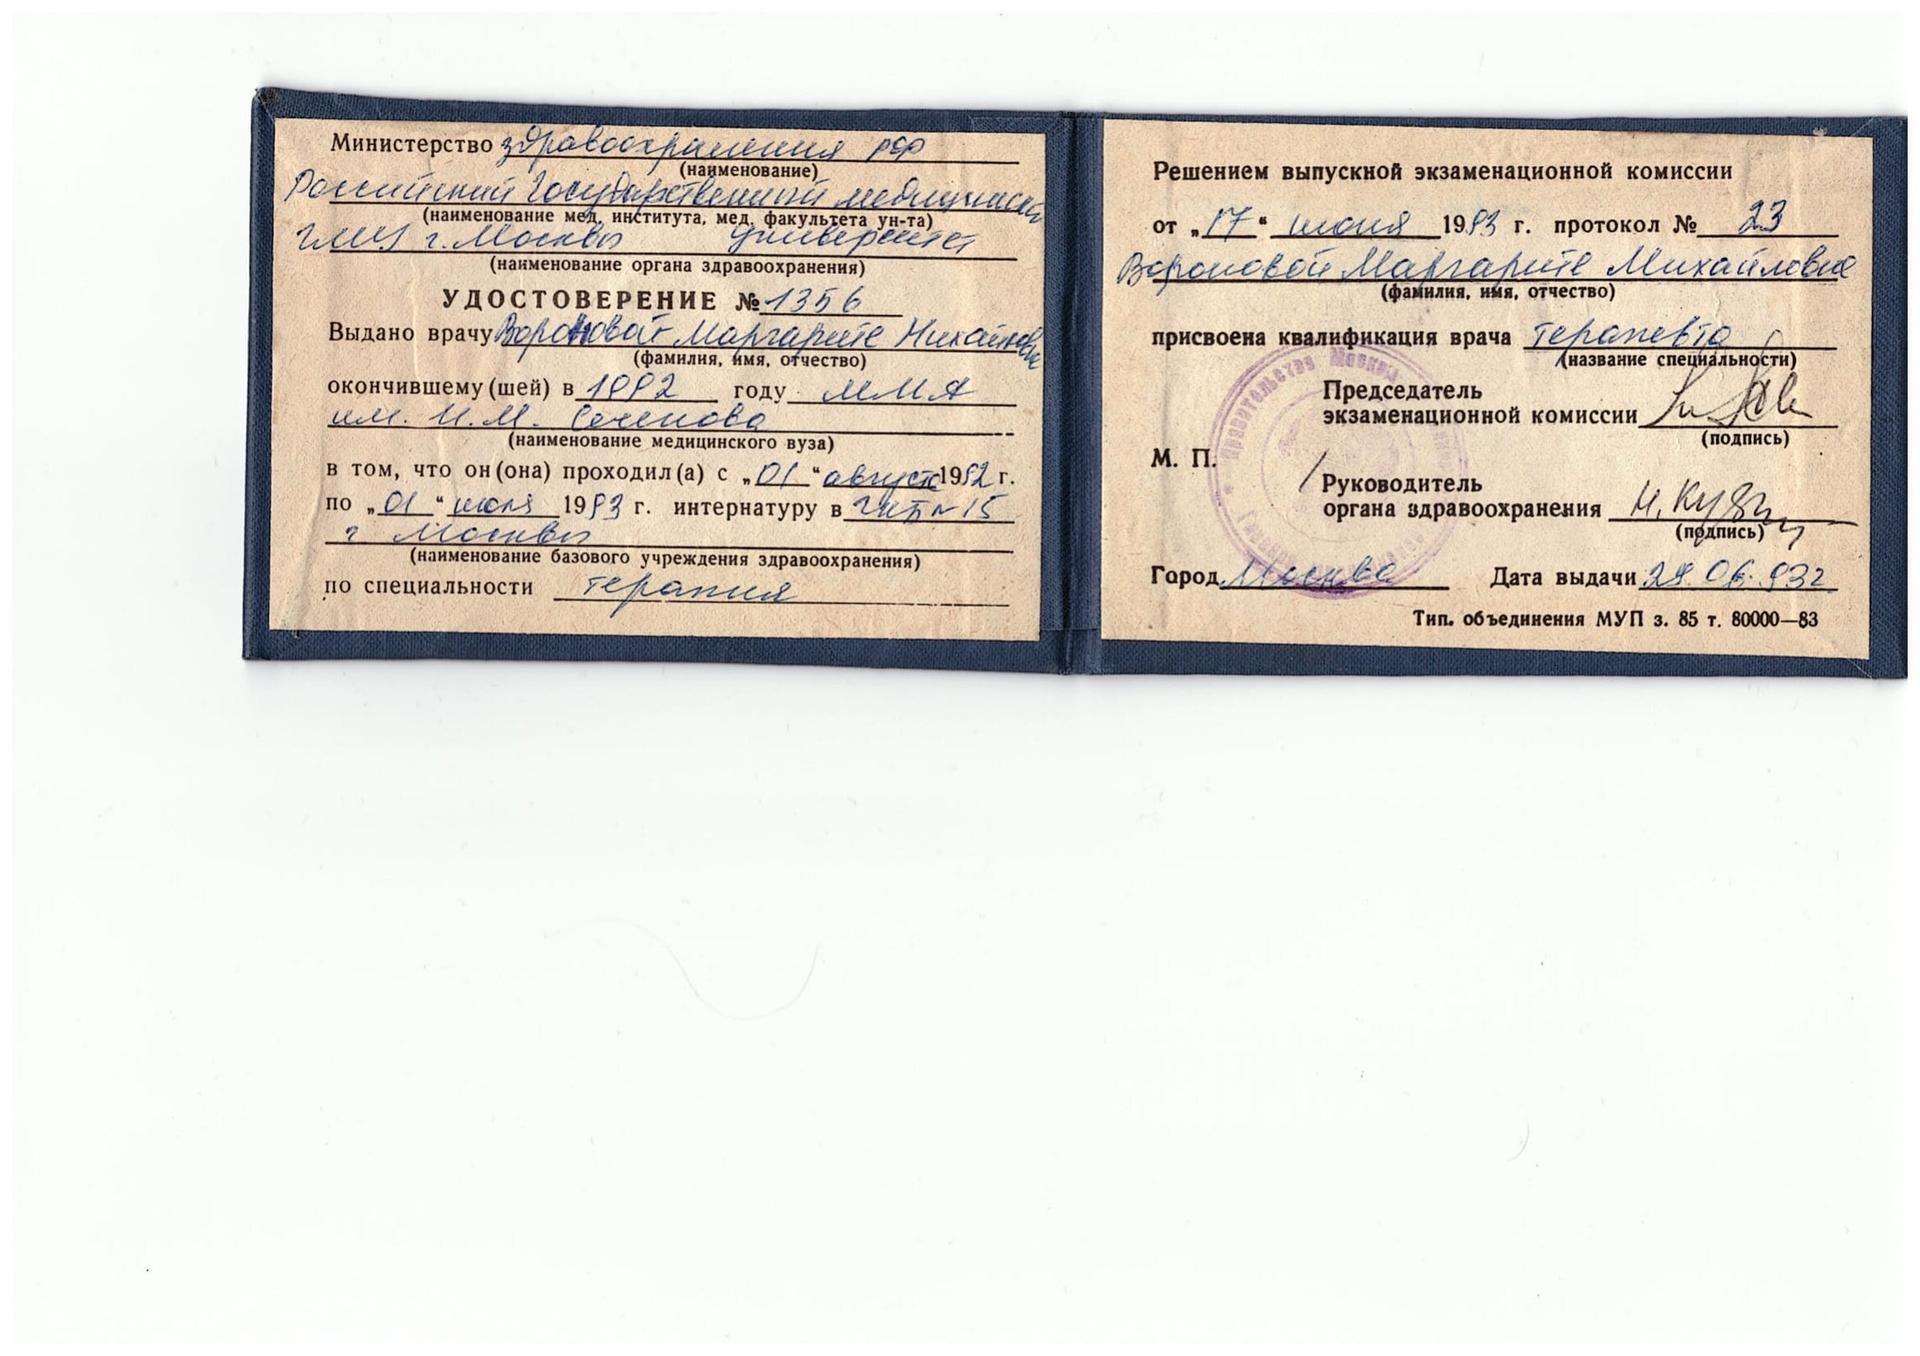 Министерство здравоохранения РФ
(наименование)
Российский Государственный медицинский
(наименование мед. института, мед. факультета ун-та)
г. Москвы Университет
(наименование органа здравоохранения)
УДОСТОВЕРЕНИЕ № 1356
Выдано врачу Вороновой Маргарите Михайловне
(фамилия, имя, отчество)
окончившему (шей) в 1992 году ММА
им. И.М. Сеченова
(наименование медицинского вуза)
в том, что он (она) проходил (а) с „01“ августа 1992 г.
по „01“ июля 1993 г. интернатуру в №15
г Москвы
(наименование базового учреждения здравоохранения)
по специальности терапия
Решением выпускной экзаменационной комиссии
от „17“ июня 1993 г. протокол № 23
Вороновой Маргарите Михайловне
(фамилия, имя, отчество)
присвоена квалификация врача терапевта
(название специальности)
Председатель
экзаменационной комиссии
(подпись)
М. П.
Правительство Москвы
Руководитель
органа здравоохранения
(подпись)
Город Москва Дата выдачи 06.93г
Тип. объединения МУП з. 85 т. 80000—83